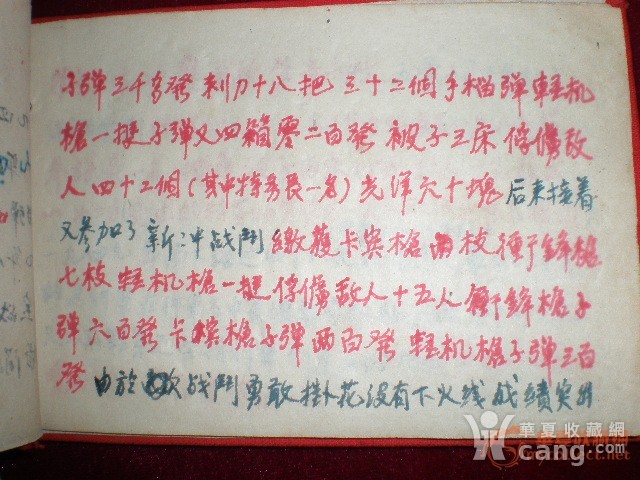 子弹三千多發 刺刀十八把 三十二個手榴弹 轻机
槍一挺 子弹又四箱零二百發 被子五床 俘虜敌
人四十二個(其中特务長一名)光洋六十塊 后来接着
又参加了新冲战鬥 繳獲卡宾槍两枝 衝鋒槍
七枝 轻机槍一挺 俘虜敌人十五人 衝鋒槍子
弹六百發 卡槟槍子弹两百發 轻机槍子弹三百
發 由於 次战鬥勇敢 掛花没有下火线 战績突出
華夏收藏網